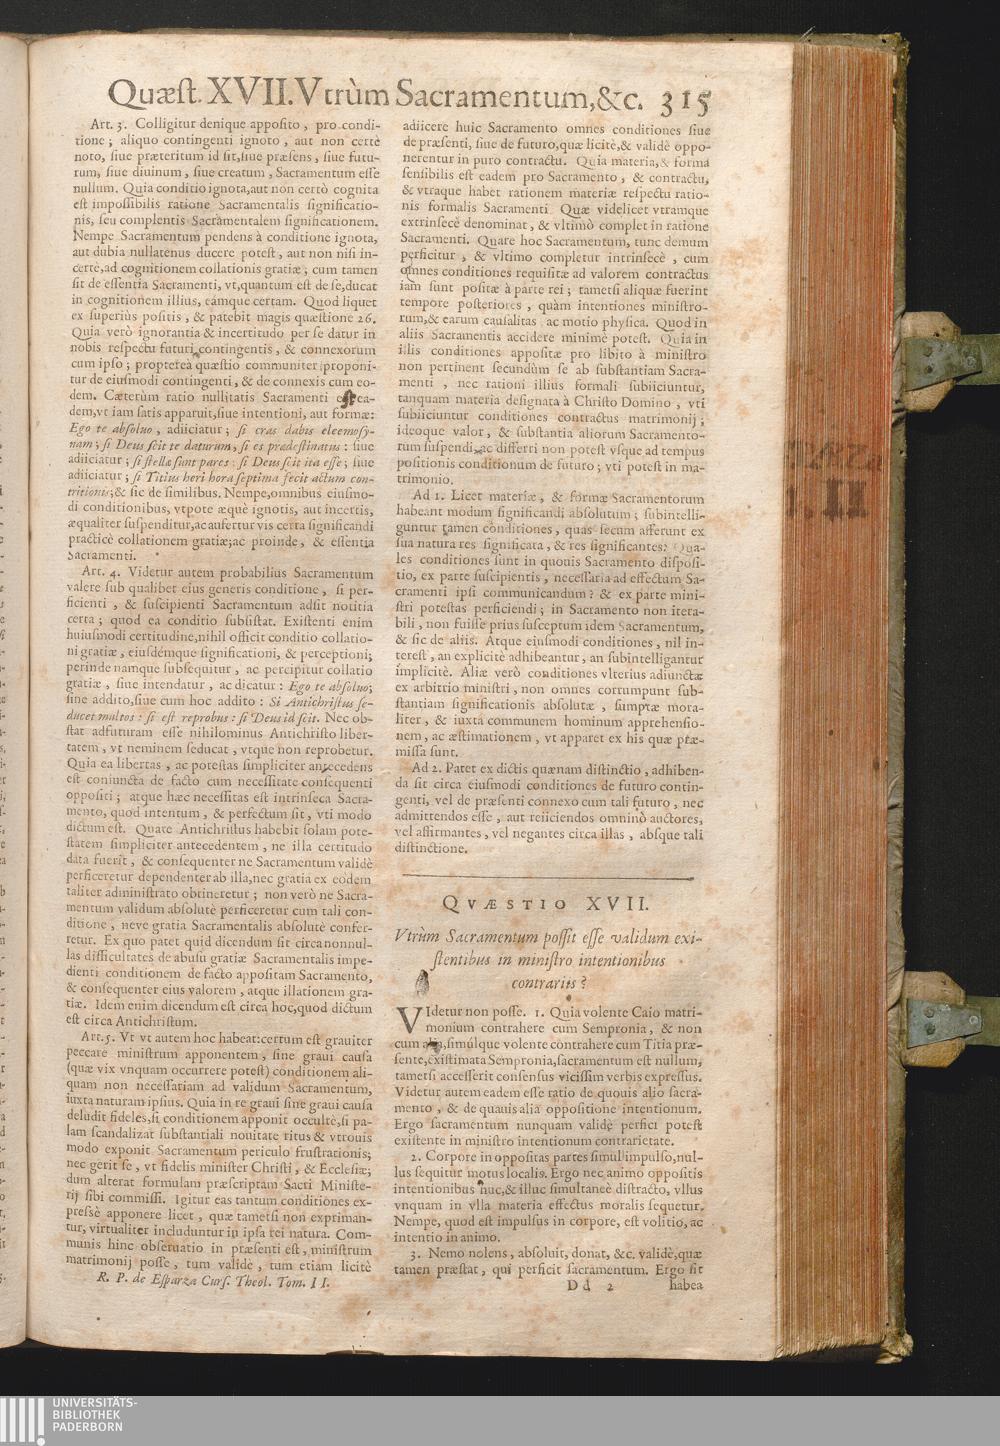 Quæst. XVII. Vtrùm Sacramentum, &c. 315
Art. 3. Colligitur denique apposito, pro condi-
tione; aliquo contingenti ignoto, aut non certè
noto, siue præteritum id sit, siue præsens, siue futu-
rum, siue diuinum, siue creatum, Sacramentum esse
nullum. Quia conditio ignota, aut non certò cognita
est impossibilis ratione Sacramentalis significatio-
nis, seu complentis Sacramentalem significationem.
Nempe Sacramentum pendens à conditione ignota,
aut dubia nullatenus ducere potest, aut non nisi in-
certè, ad cognitionem collationis gratiæ; cum tamen
sit de essentia Sacramenti, vt, quantum est de se, ducat
in cognitionem illius, eámque certam. Quod liquet
ex superiùs positis, & patebit magis quæstione 26.
Quia verò ignorantia & incertitudo per se datur in
nobis respectu futuri contingentis, & connexorum
cum ipso; propterea quæstio communiter proponi-
tur de eiusmodi contingenti, & de connexis cum eo-
dem. Cæterùm ratio nullitatis Sacramenti est ea-
dem, vt iam satis apparuit, siue intentioni, aut formæ:
Ego te absoluo, adiiciatur; si cras dabis eleemosy-
nam; si Deus scit te daturum, si es prædestinatus: siue
adiiciatur; si stellæ sunt pares: si Deus scit ita esse; siue
adiiciatur; si Titius heri hora septima fecit actum con-
tritionis; & sic de similibus. Nempe, omnibus eiusmo-
di conditionibus, vtpote æquè ignotis, aut incertis,
æqualiter suspenditur, ac aufertur vis certa significandi
practicè collationem gratiæ; ac proinde, & essentia
Sacramenti.
Art. 4. Videtur autem probabilius Sacramentum
valere sub qualibet eius generis conditione, si per-
ficienti, & suscipienti Sacramentum adsit notitia
certa; quod ea conditio subsistat. Existenti enim
huiusmodi certitudine, nihil officit conditio collatio-
ni gratiæ, eiusdémque significationi, & perceptioni;
perinde namque subsequitur, ac percipitur collatio
gratiæ, siue intendatur, ac dicatur: Ego te absoluo;
sine addito, siue cum hoc addito: Si Antichristus se-
ducet multos: si est reprobus: si Deus id scit. Nec ob-
stat adfuturam esse nihilominus Antichristo liber-
tatem, vt neminem seducat, vtque non reprobetur.
Quia ea libertas, ac potestas simpliciter antecedens
est coniuncta de facto cum necessitate consequenti
oppositi; atque hæc necessitas est intrinseca Sacra-
mento, quod intentum, & perfectum sit, vti modo
dictum est. Quare Antichristus habebit solam pote-
statem simpliciter antecedentem, ne illa certitudo
data fuerit, & consequenter ne Sacramentum validè
perficeretur dependenter ab illa, nec gratia ex eodem
taliter administrato obtineretur; non verò ne Sacra-
mentum validum absolutè perficeretur cum tali con-
ditione, neve gratia Sacramentalis absolutè confer-
retur. Ex quo patet quid dicendum sit circa nonnul-
las difficultates de abusu gratiæ Sacramentalis impe-
dienti conditionem de facto appositam Sacramento,
& consequenter eius valorem, atque illationem gra-
tiæ. Idem enim dicendum est circa hoc, quod dictum
est circa Antichristum.
Art. 5. Vt vt autem hoc habeat: certum est grauiter
peccare ministrum apponentem, sine graui causa
(quæ vix vnquam occurrere potest) conditionem ali-
quam non necessariam ad validum Sacramentum,
iuxta naturam ipsius. Quia in re graui sine graui causa
deludit fideles, si conditionem apponit occultè, si pa-
lam scandalizat substantiali nouitate ritus & vtrouis
modo exponit Sacramentum periculo frustrationis;
nec gerit se, vt fidelis minister Christi, & Ecclesiæ;
dum alterat formulam præscriptam Sacri Ministe-
rij sibi commissi. Igitur eas tantum conditiones ex-
pressè apponere licet, quæ tametsi non expriman-
tur, virtualiter includuntur in ipsa rei natura. Com-
munis hinc obseruatio in præsenti est, ministrum
matrimonij posse, tum validè, tum etiam licitè
R. P. de Esparza Curs. Theol. Tom. II.
adiicere huic Sacramento omnes conditiones siue
de præsenti, siue de futuro, quæ licitè, & validè oppo-
nerentur in puro contractu. Quia materia, & forma
sensibilis est eadem pro Sacramento, & contractu,
& vtraque habet rationem materiæ respectu ratio-
nis formalis Sacramenti Quæ videlicet vtramque
extrinsecè denominat, & vltimò complet in ratione
Sacramenti. Quare hoc Sacramentum, tunc demum
perficitur, & vltimo completur intrinsecè, cum
omnes conditiones requisitæ ad valorem contractus
iam sunt positæ à parte rei; tametsi aliquæ fuerint
tempore posteriores, quàm intentiones ministro-
rum, & earum causalitas ac motio physica. Quod in
aliis Sacramentis accidere minimè potest. Quia in
illis conditiones appositæ pro libito à ministro
non pertinent secundùm se ab substantiam Sacra-
menti, nec rationi illius formali subiiciuntur,
tanquam materia designata à Christo Domino, vti
subiiciuntur conditiones contractus matrimonij;
ideoque valor, & substantia aliorum Sacramento-
rum suspendi, ac differri non potest vsque ad tempus
positionis conditionum de futuro; vti potest in ma-
trimonio.
Ad 1. Licet materiæ, & formæ Sacramentorum
habeant modum significandi absolutum; subintelli-
guntur tamen conditiones, quas secum afferunt ex
sua natura res significata, & res significantes: Qua-
les conditiones sunt in quouis Sacramento disposi-
tio, ex parte suscipientis, necessaria ad effectum Sa-
cramenti ipsi communicandum? & ex parte mini-
stri potestas perficiendi; in Sacramento non itera-
bili, non fuisse prius susceptum idem Sacramentum,
& sic de aliis. Atque eiusmodi conditiones, nil in-
terest, an explicitè adhibeantur, an subintelligantur
implicitè. Aliæ verò conditiones vlterius adiunctæ
ex arbitrio ministri, non omnes corrumpunt sub-
stantiam significationis absolutæ, sumptæ mora-
liter, & iuxta communem hominum apprehensio-
nem, ac æstimationem, vt apparet ex his quæ præ-
missa sunt.
Ad 2. Patet ex dictis quænam distinctio, adhiben-
da sit circa eiusmodi conditiones de futuro contin-
genti, vel de præsenti connexo cum tali futuro, nec
admittendos esse, aut reiiciendos omninò auctores,
vel affirmantes, vel negantes circa illas, absque tali
distinctione.
QVÆSTIO XVII.
Vtrùm Sacramentum possit esse validum exi-
stentibus in ministro intentionibus
contrariis?
VIdetur non posse. 1. Quia volente Caio matri-
monium contrahere cum Sempronia, & non
cum alia, simúlque volente contrahere cum Titia præ-
sente, existimata Sempronia, sacramentum est nullum,
tametsi accesserit consensus vicissim verbis expressus.
Videtur autem eadem esse ratio de quouis alio sacra-
mento, & de quauis alia oppositione intentionum.
Ergo sacramentum nunquam validè perfici potest
existente in ministro intentionum contrarietate.
2. Corpore in oppositas partes simul impulso, nul-
lus sequitur motus localis. Ergo nec animo oppositis
intentionibus huc, & illuc simultaneè distracto, vllus
vnquam in vlla materia effectus moralis sequetur.
Nempe, quod est impulsus in corpore, est volitio, ac
intentio in animo.
3. Nemo nolens, absoluit, donat, &c. validè, quæ
tamen præstat, qui perficit sacramentum. Ergo sit
Dd 2 habea
UNIVERSITÄTS-
BIBLIOTHEK
PADERBORN